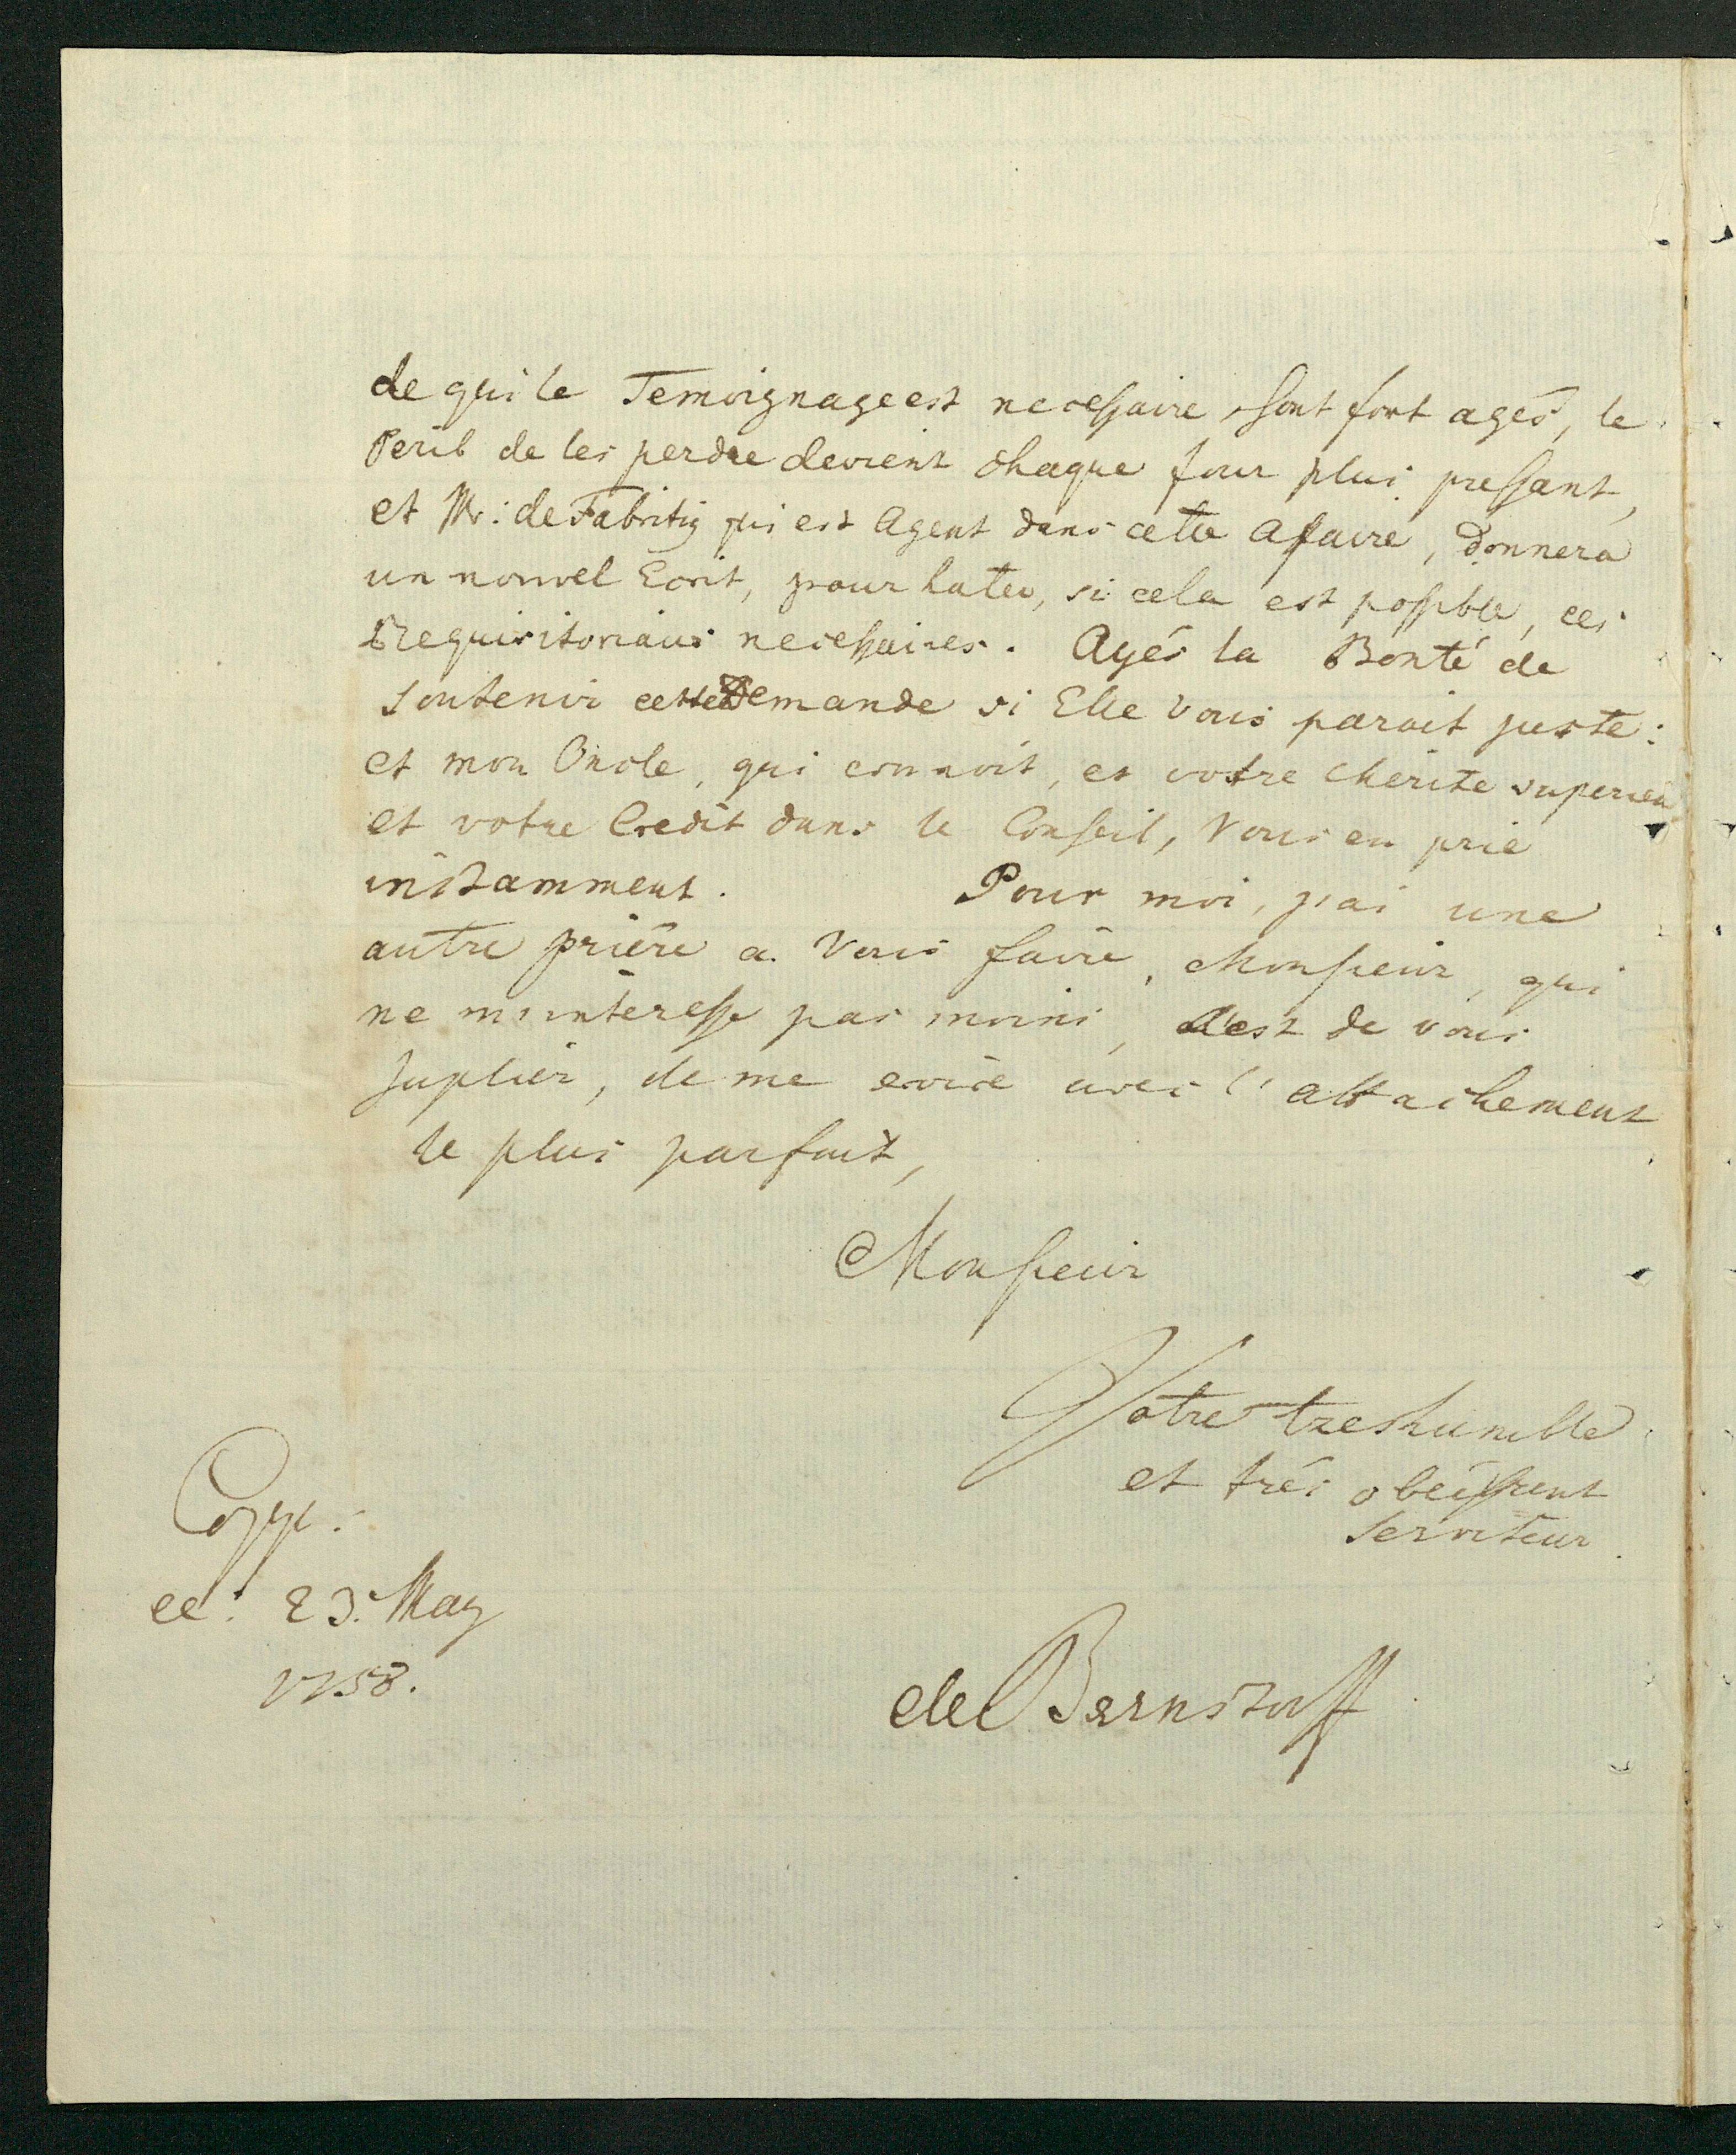 de qui le Temoignage est necessaire, sont fort agés, le
Peril de les perdre devient chaque jour plus pressant,
et Mr: de Fabritig qui est Agent dans cette Afaire, donnera
un nouvel Ecrit, pour hater, si cela est possible, ces
Requisitoriaux necessaires. Ayés la Bonté de
soutenir cette Demande si Elle vous parait juste:
et mon Oncle, qui connoit, et votre Merite superieu
et votre Credit dans le Conseil, Vous en prie
instamment. Pour moi, j'ai une
autre prière a Vous faire, Monsieur, qui
ne m'interesse pas moins, c'est de vous
suplier, de me croire avec l'attachement
le plus parfait,
Monsieur
Votre treshumble
et trés obeissant
serviteur.
Copp:
ce: 23. May
1758.
de Bernstorff